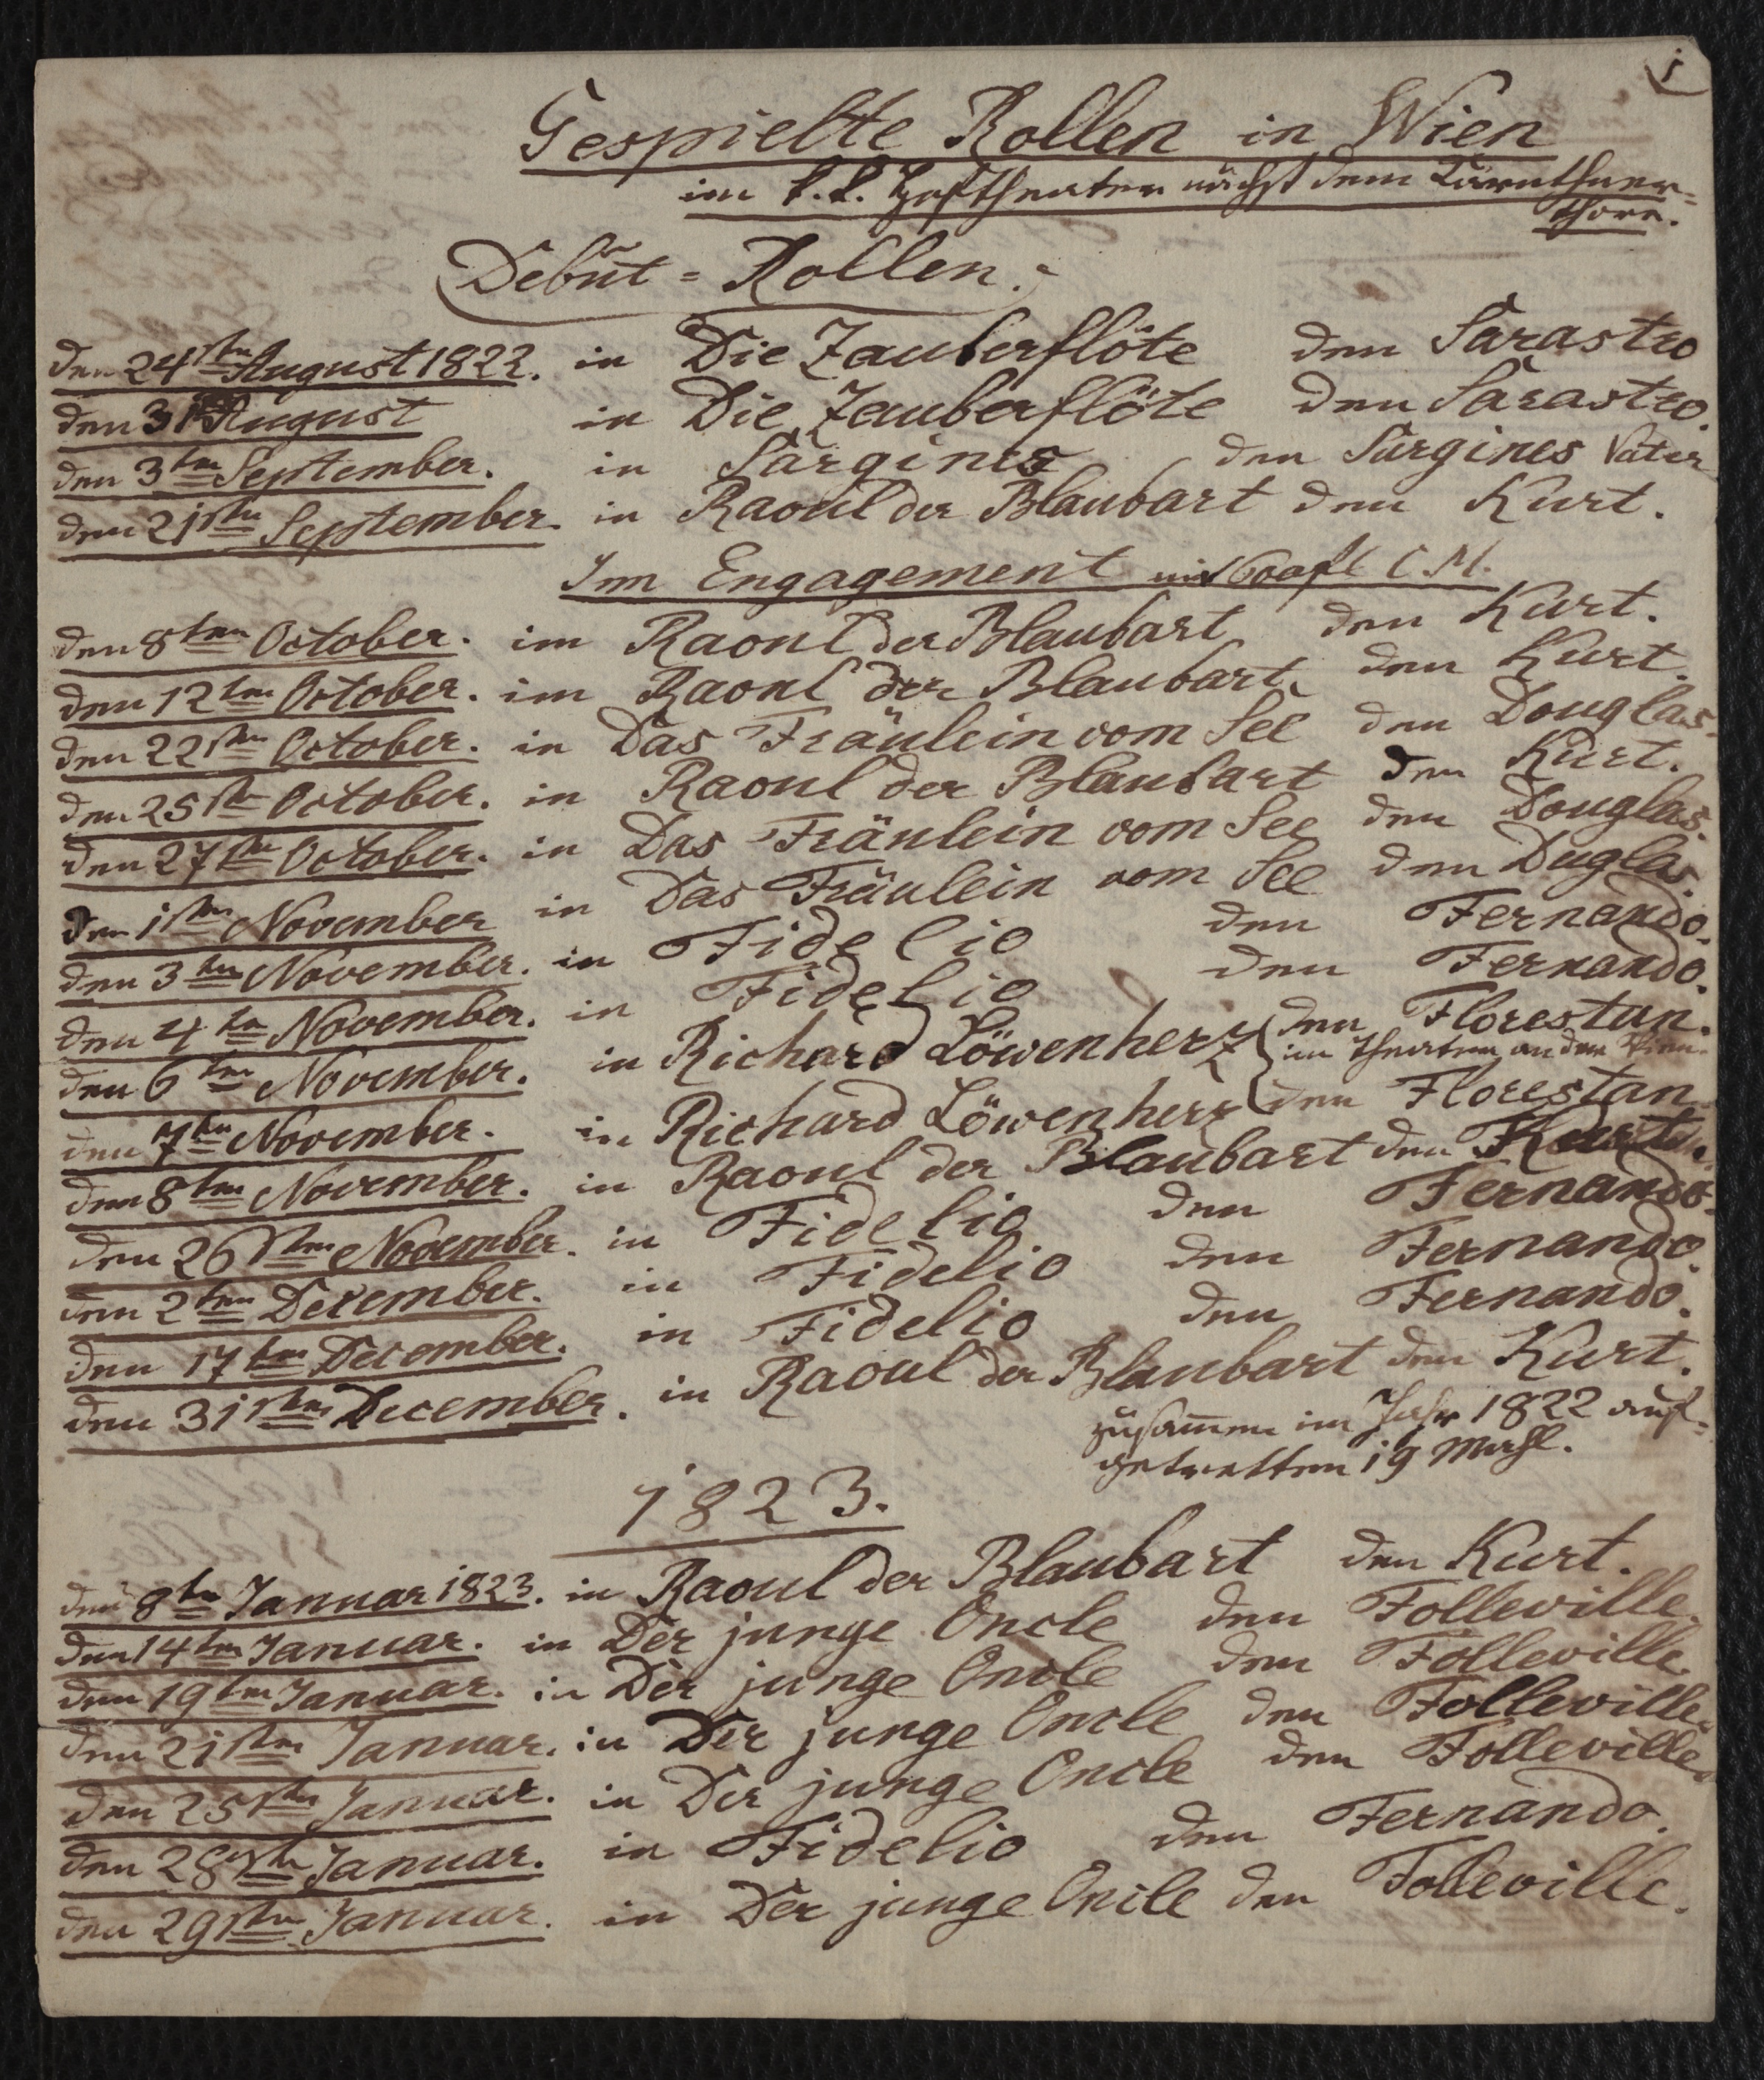 1
Gespielte Rollen in Wien
im k. k. Hoftheater nächst dem Kärnthner=
thore.
Debüt = Rollen.
den 24sten August 1822. in Die Zauberflöte den Sarastro
den 31 August in Die Zauberflöte den Sarastro.
den 3ten September. in Sargines den Sargines Vater
den 21sten September. in Raoul der Blaubart den Kurt.
Im Engagement mit 600 fl C. M.
den 8ten October. im Raoul der Blaubart den Kurt.
den 12ten October. im Raoul der Blaubart den Kurt.
den 22sten October. in Das Fräulein vom See den Douglas.
den 25sten October. in Raoul der Blaubart den Kurt.
den 27sten October. in Das Fräulein vom See den Douglas.
den 1sten November in Das Fräulein vom See den Duglas.
den 3ten November. in Fidelio den Fernando.
den 4ten November. in Fidelio den Fernando.
den 6ten November. in Richard Löwenherz den Florestan.
im Theater an der Wien.
den 7ten November. in Richard Löwenherz den Florestan
den 8ten November. in Raoul der Blaubart den Kurt.
den 26sten November. in Fidelio den Fernando.
den 2ten December. in Fidelio den Fernando.
den 17ten December. in Fidelio den Fernando.
den 31sten December. in Raoul der Blaubart den Kurt.
zusam̅en im Jahr 1822 auf=
getretten 19 Mahl.
1823.
den 8ten Januar 1823. in Raoul der Blaubart den Kurt.
den 14ten Januar. in Der junge Oncle den Folleville.
den 19ten Januar. in Der junge Oncle den Folleville.
den 21sten Januar. in Der junge Oncle den Folleville.
den 25sten Januar. in Der junge Oncle den Folleville.
den 28sten Januar. in Fidelio den Fernando.
den 29sten Januar. in Der junge Oncle den Folleville.